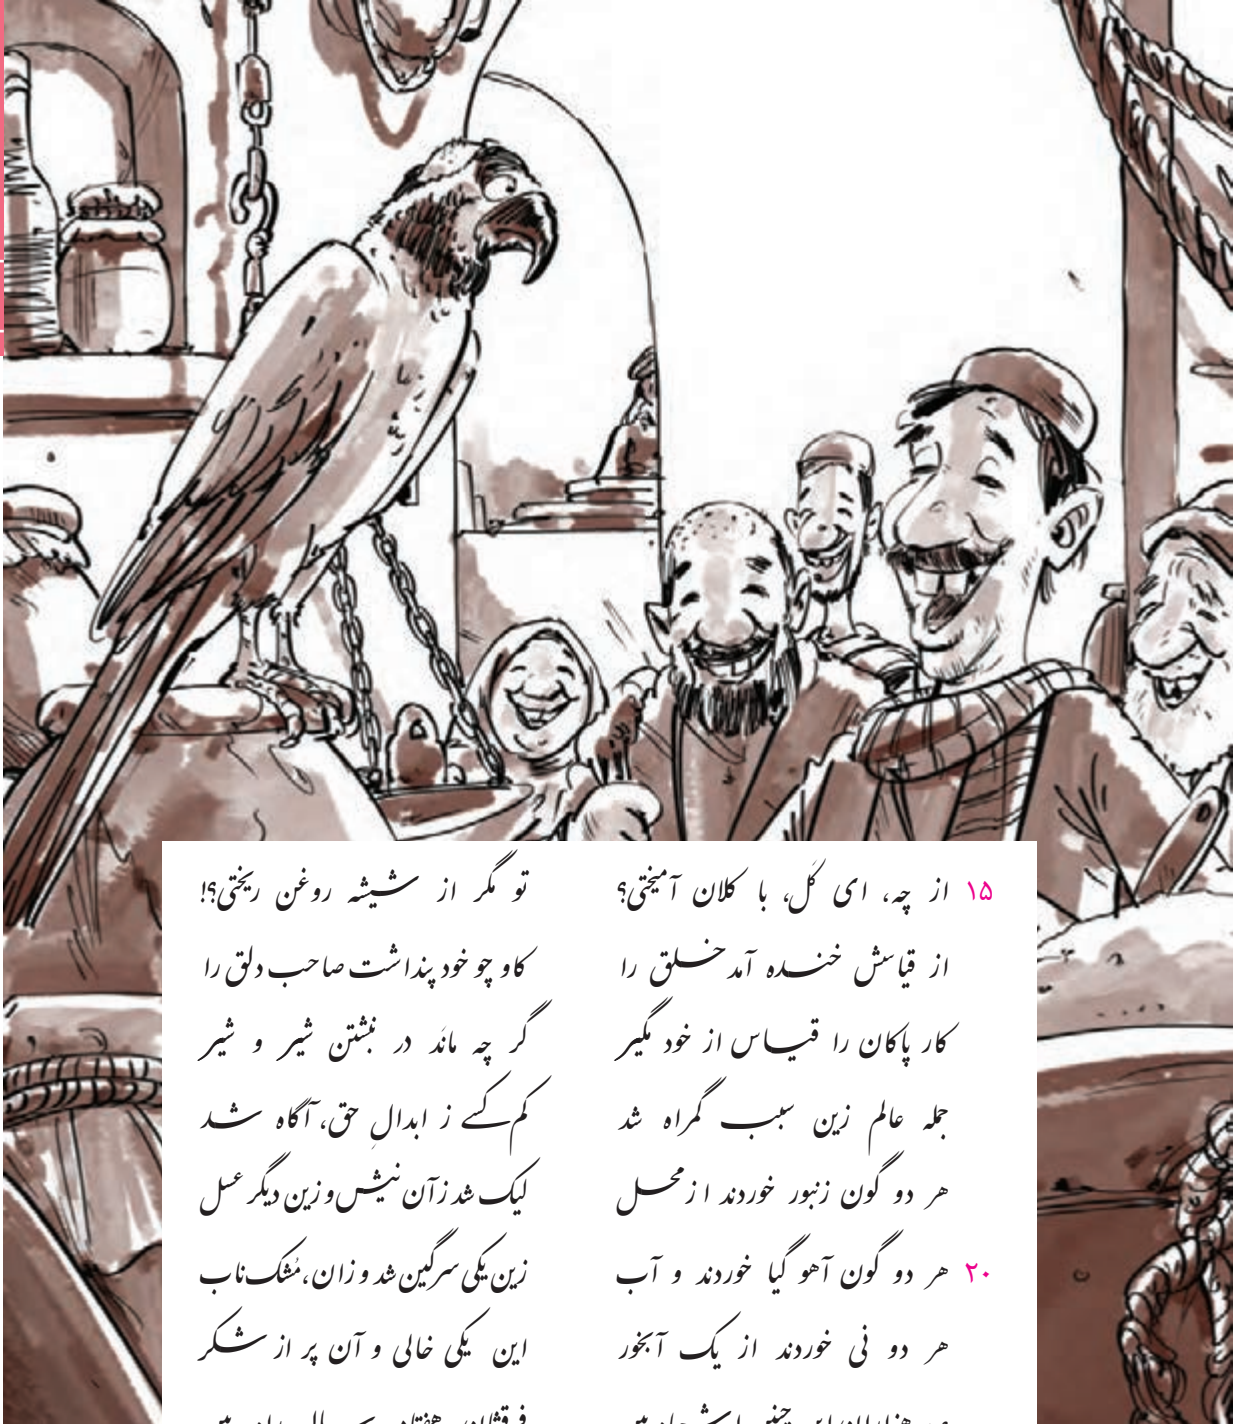 ۱۵ از چه، ای کَل، با کلان آمیختی؟ تو مگر از شیشه روغن ریختی؟!
از قیاسش خنده آمد خلق را کاو چو خود پنداشت صاحب دلق را
کار پاکان را قیاس از خود مگیر گر چه مانَد در نبشتن شیر و شیر
جمله عالم زین سبب گمراه شد کم کسی ز ابدالِ حق، آگاه شد
هر دو گون زنبور خوردند از محل لیک شد زآن نیش و زین دیگر عسل
۲۰ هر دو گون آهو گیا خوردند و آب زین یکی سرگین شد و زان، مُشک ناب
هر دو نی خوردند از یک آبخور این یکی خالی و آن پر از شکر